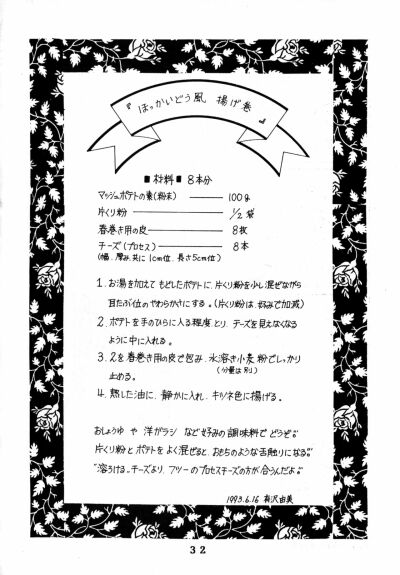 『ほっかいどう風 揚げ巻』
■材料■ 8本分
マッシュポテトの素(粉末) ―― 100g
片くり粉 ―― 1/2袋
春巻き用の皮 ―― 8枚
チーズ(プロセス) ―― 8本
(幅、厚み、共に1cm位、長さ5cm位)
1. お湯を加えて もどしたポテトに、片くり粉を少し混ぜながら
耳たぶ位のやわらかさにする。(片くり粉は、好みで加減)
2. ポテトを手のひらに入る程度とり、チーズを見えなくなる
ように中に入れる。
3. 2を春巻き用の皮で包み、水溶き小麦粉でしっかり
(分量は別)
止める。
4. 熱した油に、静かに入れ、キツネ色に揚げる。
おしょうゆ や 洋ガラシ など好みの調味料で どうぞ。
片くり粉と ポテトを よく混ぜると、おもちのような舌触りになる。
"溶ろける"チーズより、フツーのプロセスチーズの方が合うんだよ。
1993.6.16 有沢由美
32